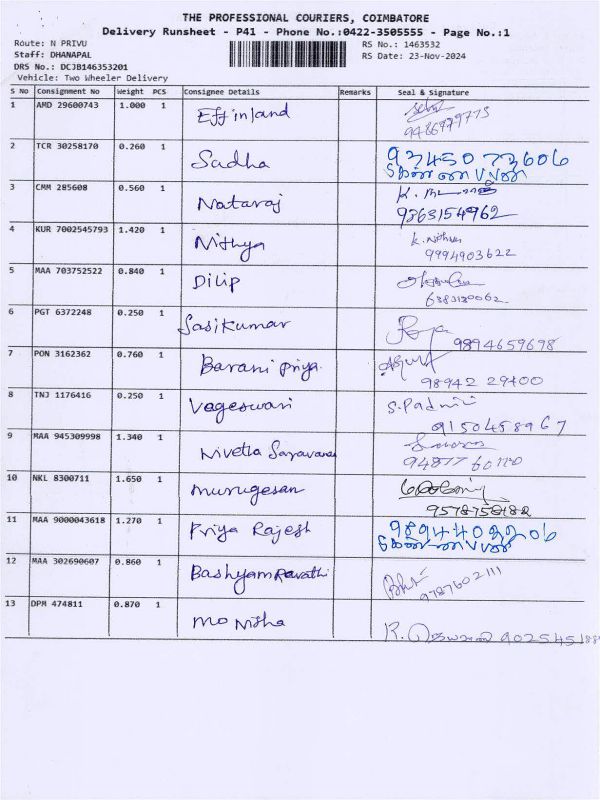 THE PROFESSIONAL COURIERS, COIMBATORE
Delivery Runsheet - P41 - Phone No.:0422-3505555 - Page No.:1
Route: N PRIVU
Staff: DHANAPAL
DRS No.: DCJB146353201
Vehicle: Two Wheeler Delivery
RS No.: 1463532
RS Date: 23-Nov-2024
S No Consignment No Weight PCS Consignee Details Remarks Seal & Signature
1 AMD 29600743 1.000 1 Effinland
2 TCR 30258170 0.260 1 Sudha 9345073606
3 CMM 285608 0.560 1 Nataraj 9363154962
4 KUR 7002545793 1.420 1 Nithya K. Nithya
9994903622
5 MAA 703752522 0.840 1 Dilip
6383130062
6 PGT 6372248 0.250 1 Sasikumar 9894659698
7 PON 3162362 0.760 1 Barani Priya
98942 29400
8 TNJ 1176416 0.250 1 Vageswari S. Padmini
9150458967
9 MAA 945309998 1.340 1 Nivetha Saravana
10 NKL 8300711 1.650 1 Murugesan
9578758182
11 MAA 9000043618 1.270 1 Priya Rajesh
12 MAA 302690607 0.860 1 Bashyam Ravathi
9787602111
13 DPM 474811 0.870 1 Monisha